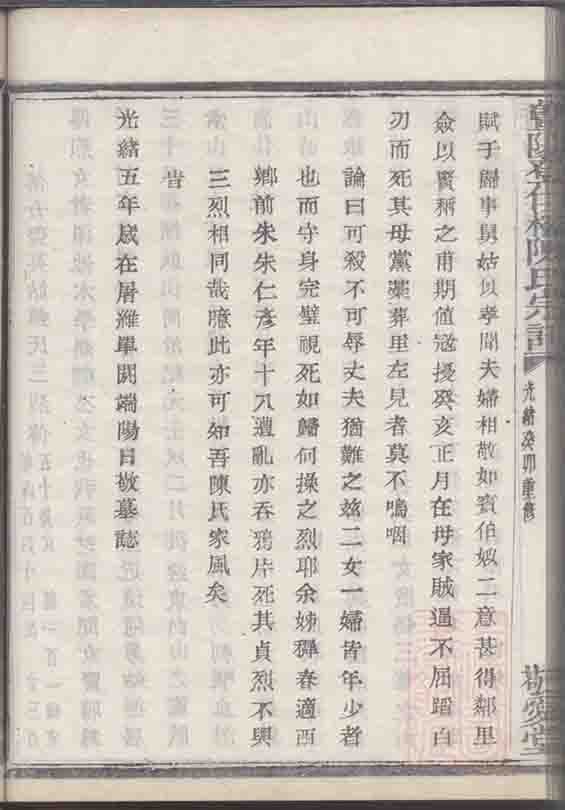 陳氏宗譜
光緒癸卯重修
敬愛堂
賦于歸事舅姑以孝聞夫婦相敬如賓伯姒二意甚得鄰里
僉以賢稱之甫期值寇擾癸亥正月在母家賊逼不屈蹈白
刃而死其母黨藁葬里左見者莫不嗚咽
論曰可殺不可辱丈夫猶難之茲二女一婦皆年少者
也而守身完璧視死如歸何操之烈耶余姊春適西
鄉前朱朱仁彥年十八遭亂亦吞鴉片死其貞烈不與
三烈相同哉噫此亦可知吾陳氏家風矣
旹
光緒五年歲在屠維單閼端陽日敬墓誌